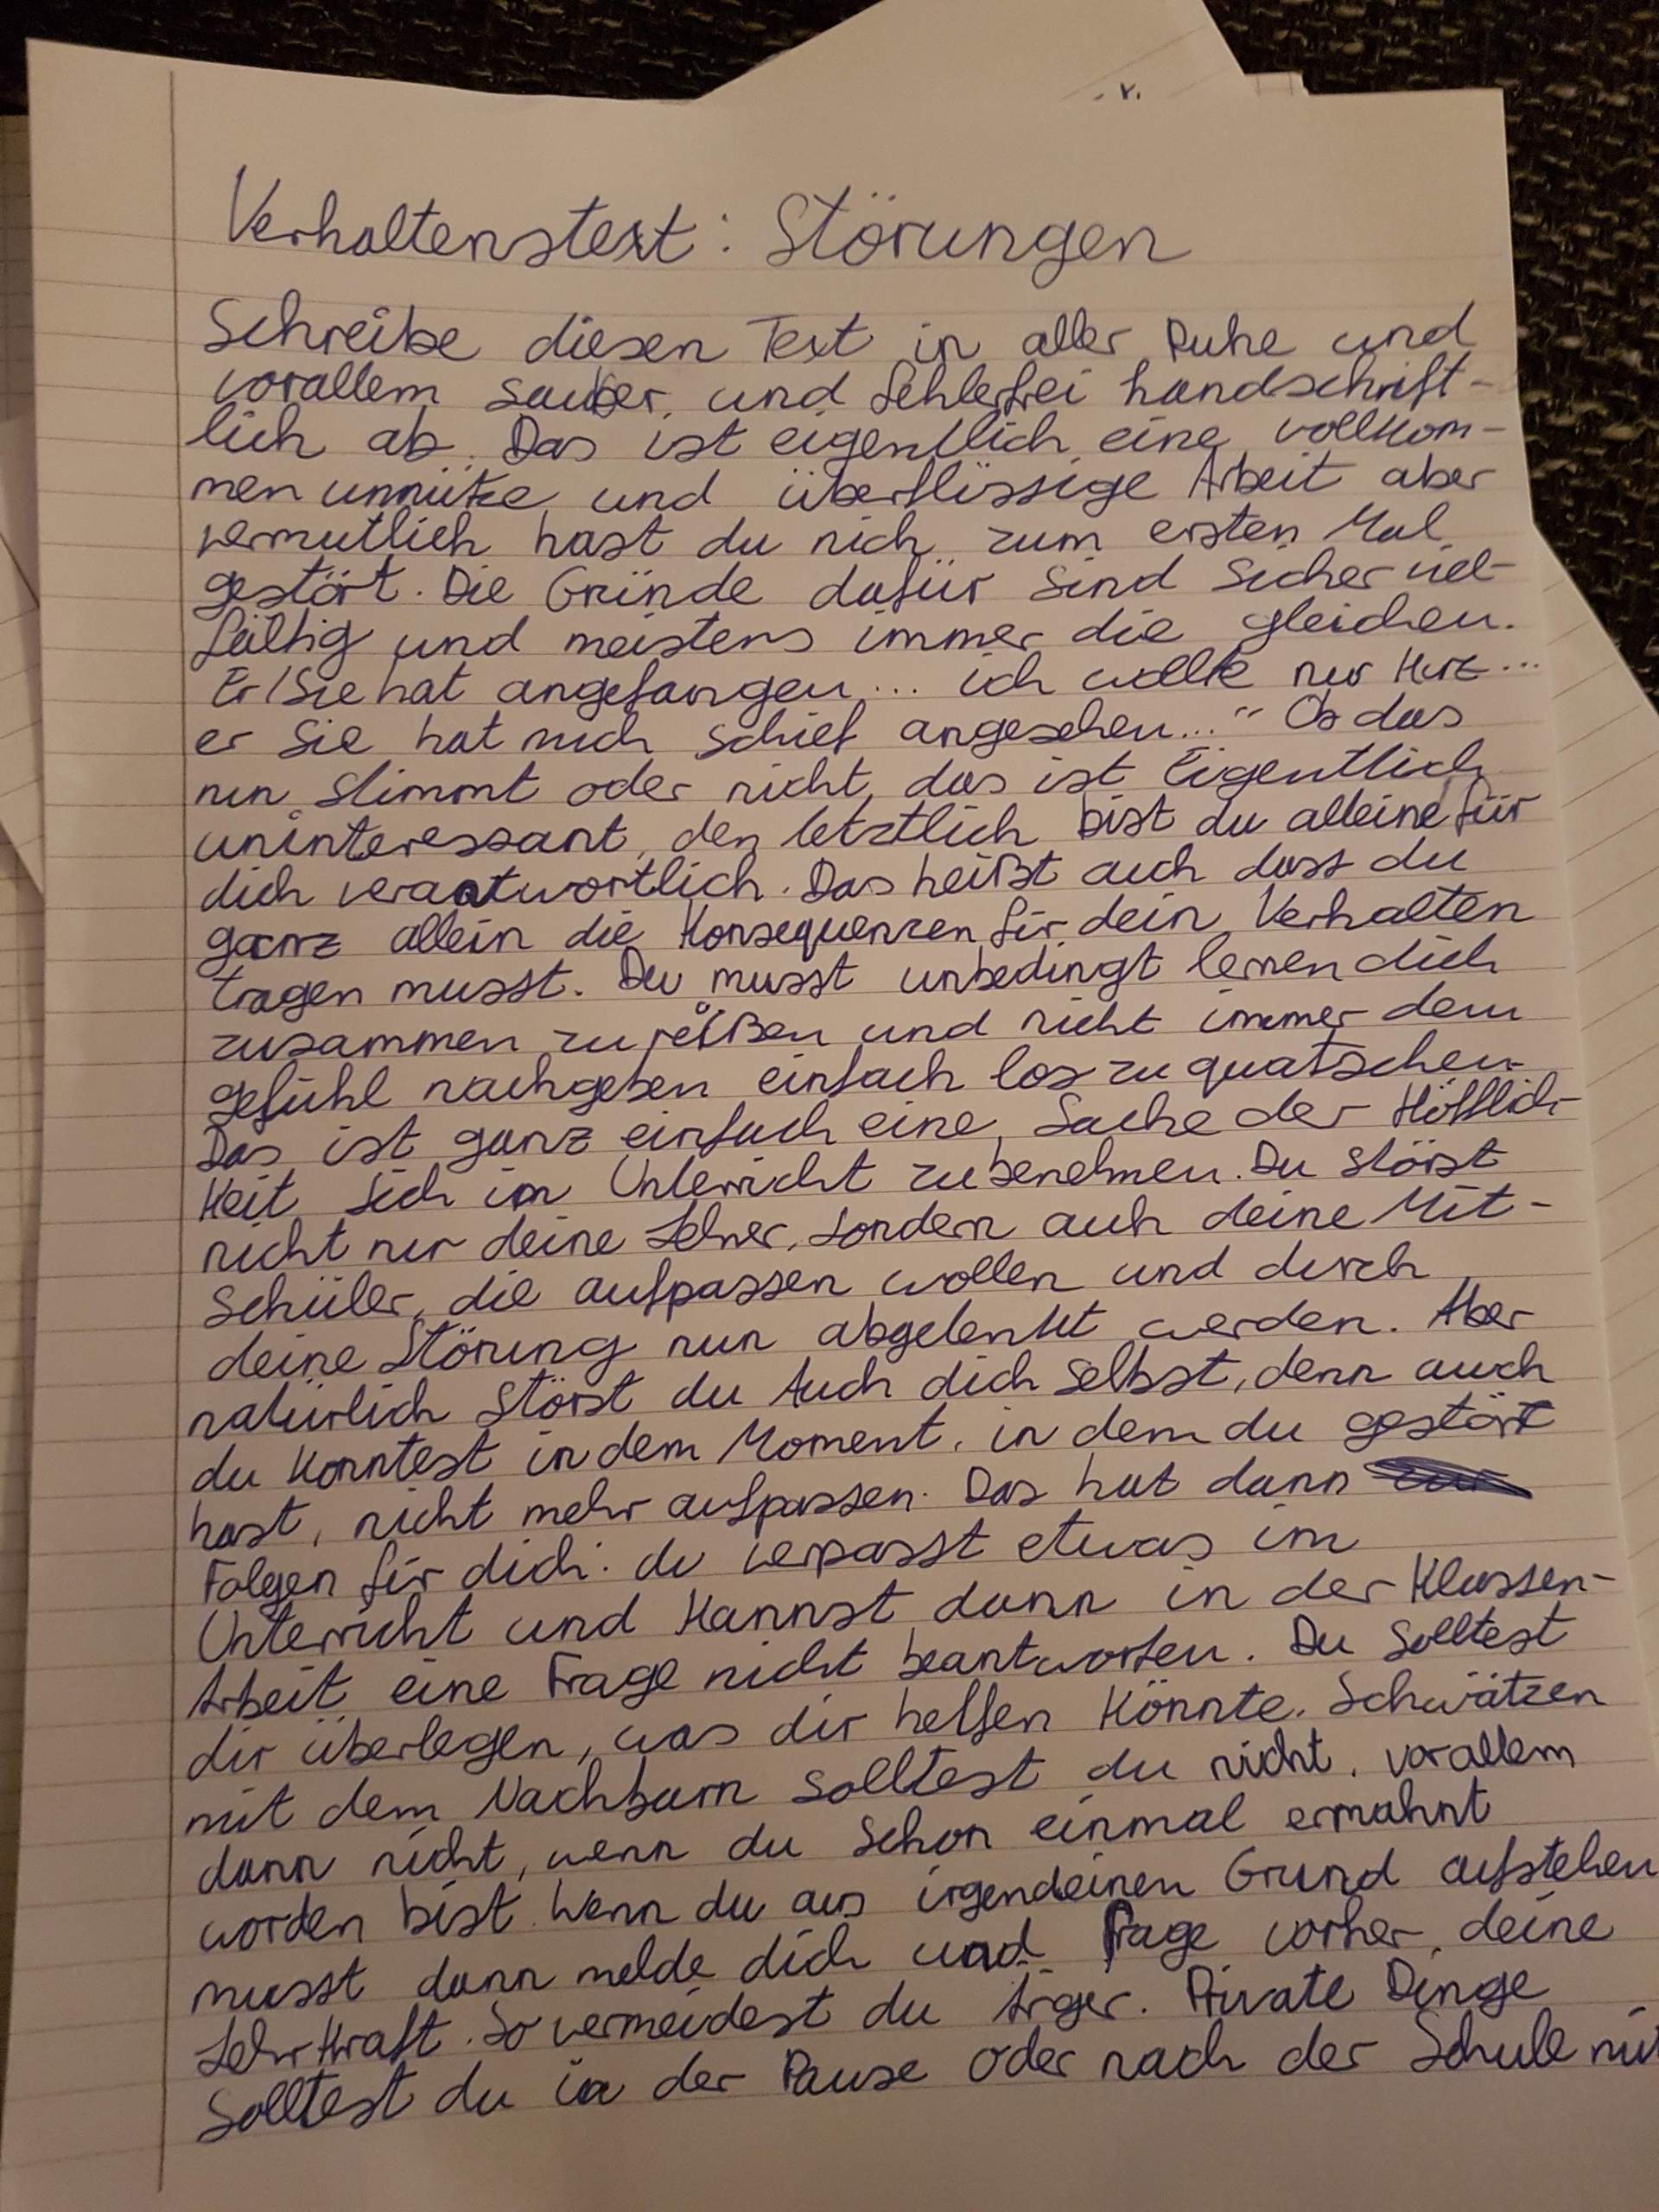 Verhaltenstext: Störungen
Schreibe diesen Text in aller Ruhe und
vorallem sauber, und fehlerfrei handschrift-
lich ab. Das ist eigentlich eine vollkom-
men unnütze und überflüssige Arbeit aber
vermutlich hast du nich zum ersten Mal
gestört. Die Gründe dafür sind sicher viel-
fältig und meistens immer die gleichen.
Er/Sie hat angefangen... ich wollte nur kurz...
er Sie hat mich schief angesehen..." Ob das
nun stimmt oder nicht, das ist Eigentlich
uninteressant, den letztlich bist du alleine für
dich verantwortlich. Das heißt auch dass du
ganz allein die Konsequenzen für dein Verhalten
tragen musst. Du musst unbedingt lernen dich
zusammen zu reißen und nicht immer dem
gefühl nachgeben einfach los zu quatschen.
Das ist ganz einfach eine Sache der Höfflich-
keit sich im Unterricht zu benehmen. Du störst
nicht nur deine Lehrer, sondern auch deine Mit-
Schüler, die aufpassen wollen und durch
deine Störung nun abgelenkt werden. Aber
natürlich Störst du Auch dich selbst, denn auch
du konntest in dem Moment, in dem du gestört
hast, nicht mehr aufpassen. Das hat dann
Folgen für dich: du verpasst etwas im
Unterricht und Kannst dann in der Klassen-
Arbeit eine Frage nicht beantworten. Du Solltest
dir überlegen, was dir helfen Könnte. Schwätzen
mit dem Nachbarn solltest du nicht, vorallem
dann nicht, wenn du schon einmal ermahnt
worden bist. Wenn du aus irgendeinen Grund aufstehen
musst dann melde dich und Frage vorher, deine
Lehrkraft. So vermeidest du Ärger. Private Dinge
Solltest du in der Pause oder nach der Schule mit